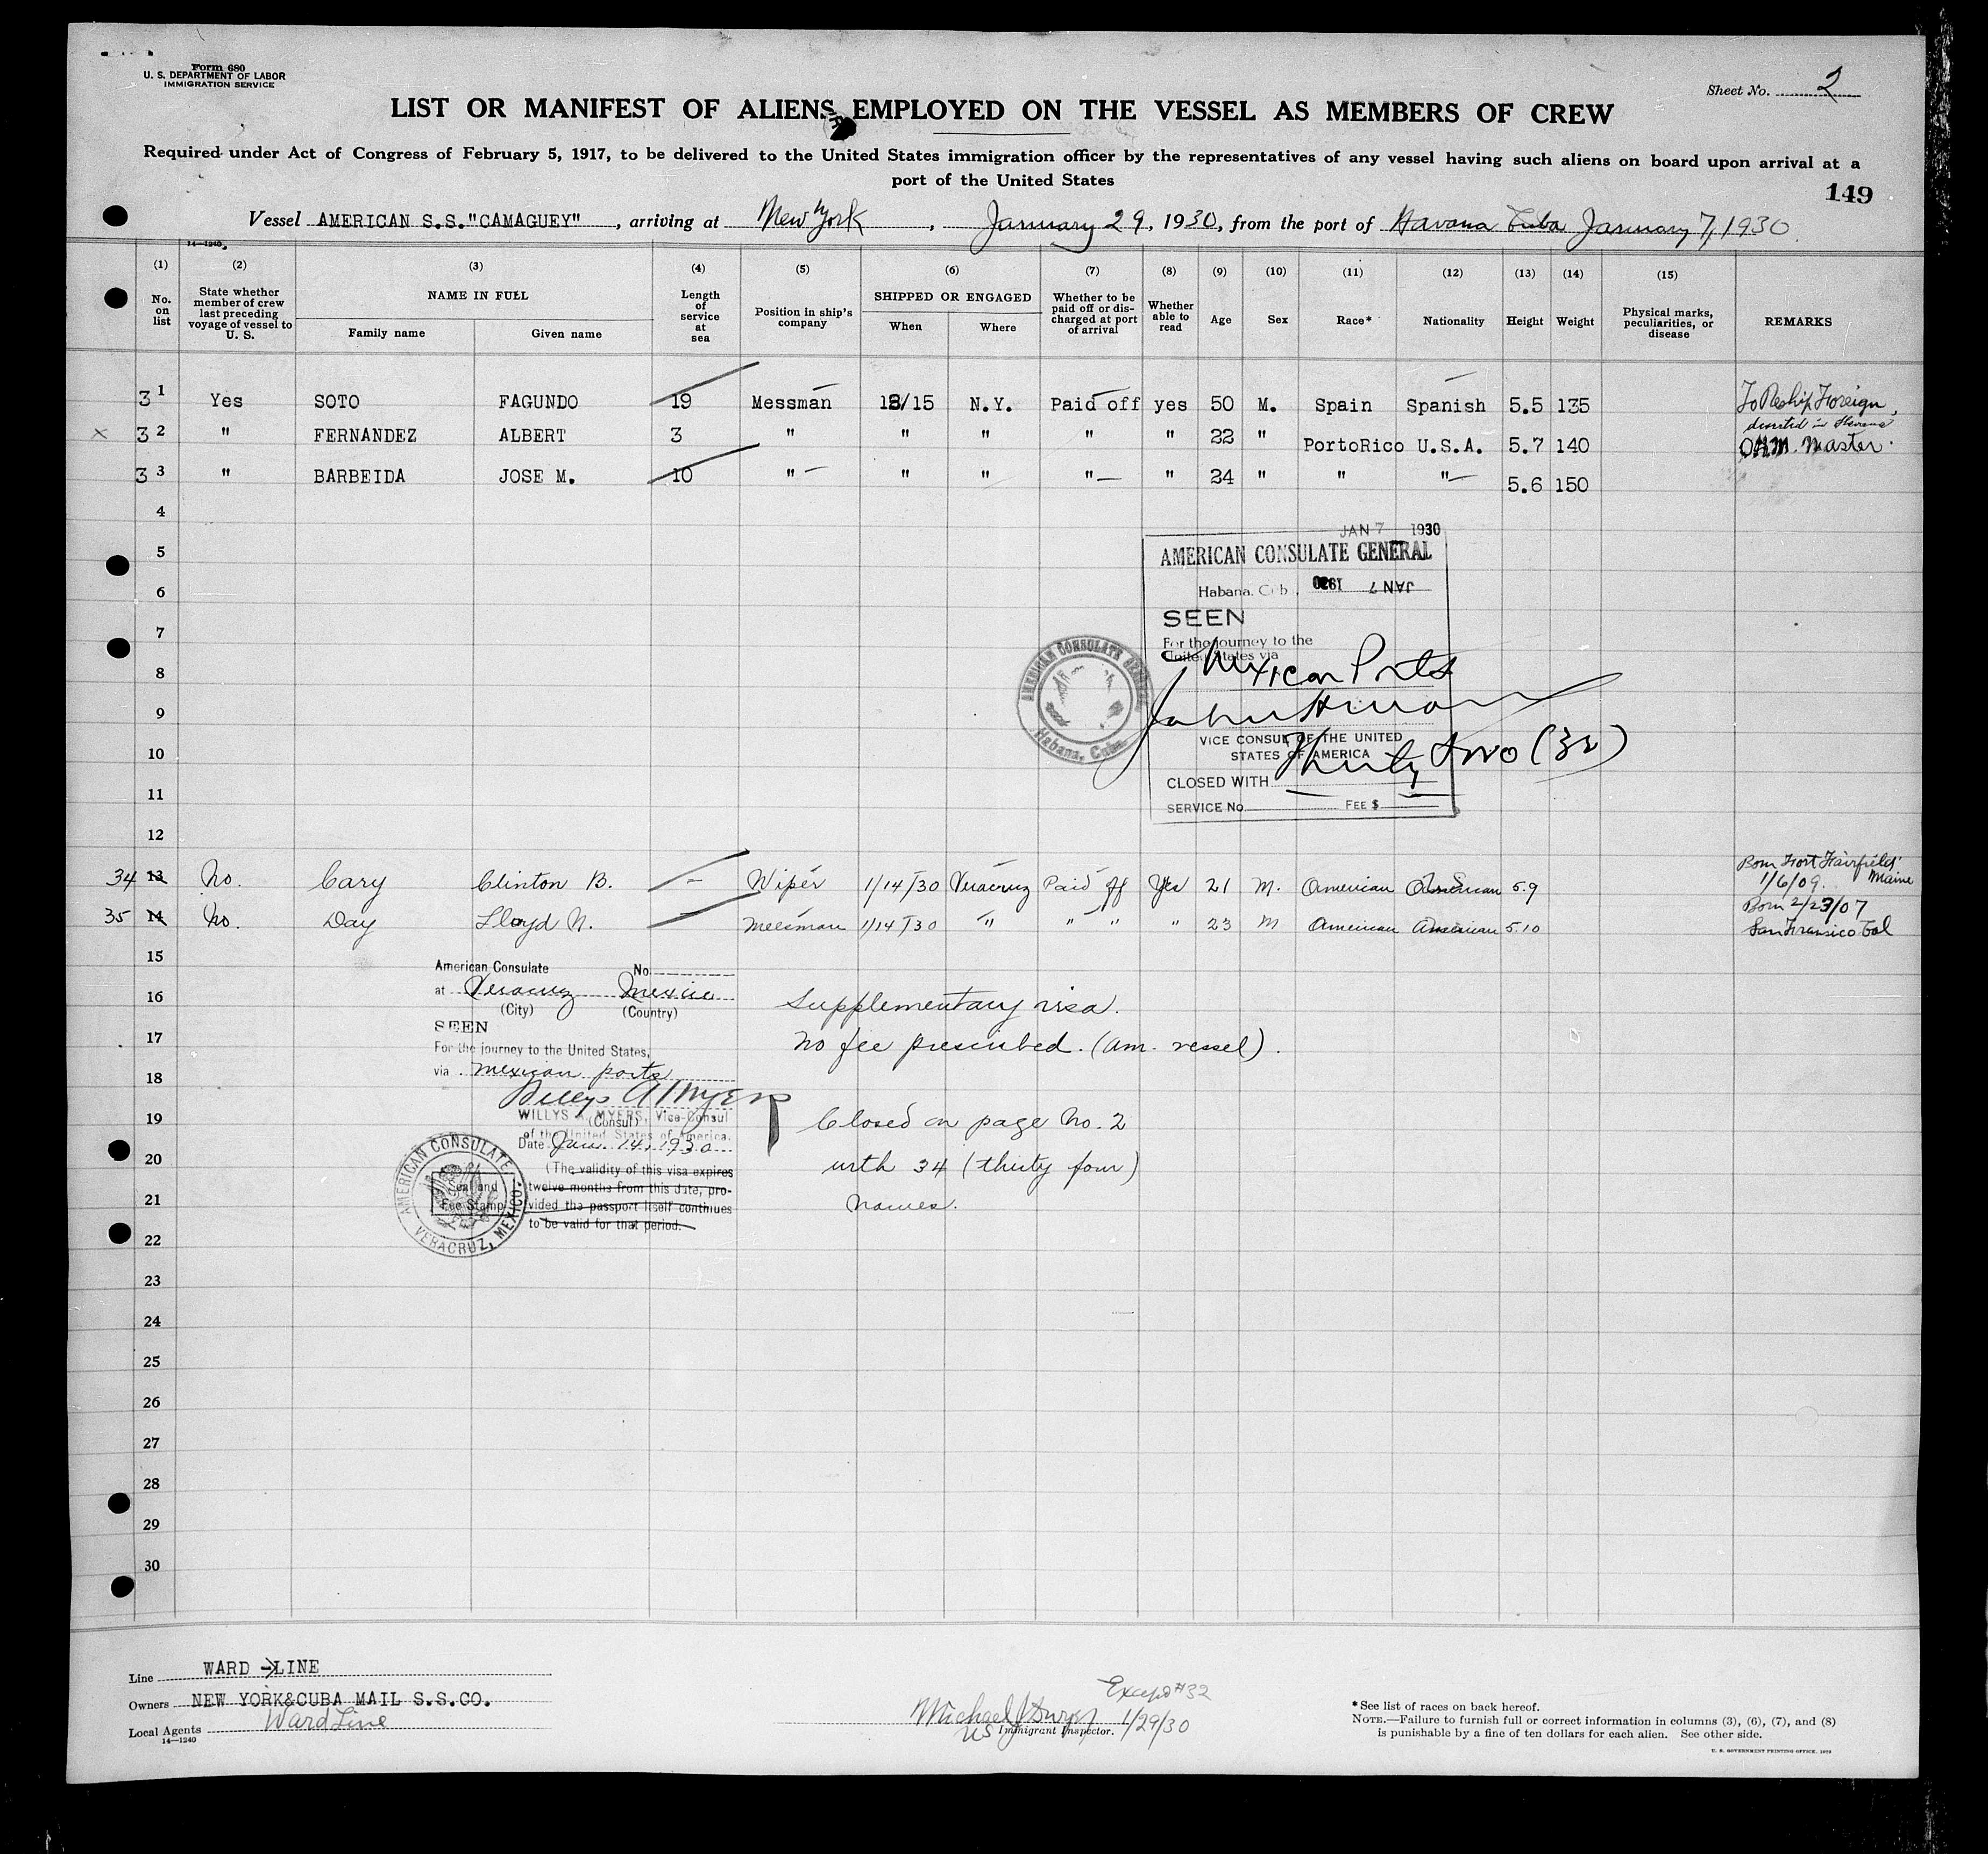 Form 680
U. S. DEPARTMENT OF LABOR
IMMIGRATION SERVICE
Sheet No. 2
LIST OR MANIFEST OF ALIENS EMPLOYED ON THE VESSEL AS MEMBERS OF CREW
Required under Act of Congress of February 5, 1917, to be delivered to the United States immigration officer by the representatives of any vessel having such aliens on board upon arrival at a
port of the United States
149
Vessel AMERICAN S.S."CAMAGUEY", arriving at New York, January 29, 1930, from the port of Havana Cuba January 7, 1930
14—1240
(1) (2) (3) (4) (5) (6) (7) (8) (9) (10) (11) (12) (13) (14) (15)
No. on list
State whether member of crew last preceding voyage of vessel to U. S.
NAME IN FULL
Family name Given name
Length of service at sea
Position in ship's company
SHIPPED OR ENGAGED
When Where
Whether to be paid off or discharged at port of arrival
Whether able to read
Age Sex Race* Nationality Height Weight
Physical marks, peculiarities, or disease
REMARKS
3 1 Yes SOTO FAGUNDO 19 Messman /15 N.Y. Paid off yes 50 M. Spain Spanish 5.5 135 To Reship Foreign,
x 3 2 " FERNANDEZ ALBERT 3 " " " " " 22 " PortoRico U.S.A. 5.7 140 deserted in Havana
Master.
3 3 " BARBEIDA JOSE M. 10 " " " " " 24 " " " 5.6 150
4
5
6
7
8
9
10
11
12
JAN 7 1930
AMERICAN CONSULATE GENERAL
Habana, Cuba, JAN 7 1930
SEEN
For the journey to the
United States via
Mexican Ports
VICE CONSUL OF THE UNITED
STATES OF AMERICA
CLOSED WITH Thirty two (32)
SERVICE No. FEE $
AMERICAN CONSULATE GENERAL
Habana, Cuba.
34 13 No. Cary Clinton B. - Wiper 1/14/30 Veracruz Paid off Yes 21 M. American American 5.9 Born Fort Fairfield Maine
1/6/09.
35 14 No. Day Lloyd N. - Messman 1/14/30 " " " " 23 M American American 5.10 Born 2/23/07
San Fransico Cal
15
16
17
18
19
20
21
22
23
24
25
26
27
28
29
30
American Consulate No.
at Veracruz Mexico
(City) (Country)
SEEN
For the journey to the United States,
via mexican ports
Willys A Myers
WILLYS A. MYERS, Vice-Consul
(Consul)
of the United States of America.
Date Jan. 14, 1930
(The validity of this visa expires
twelve months from this date, pro-
vided the passport itself continues
to be valid for that period.
AMERICAN CONSULATE
Seal and
Fee Stamp
VERACRUZ, MEXICO
Supplementary visa.
No fee prescribed. (Am. vessel).
Closed on page No. 2
with 34 (thirty four)
names.
Line WARD LINE
Owners NEW YORK&CUBA MAIL S.S.CO.
Local Agents Ward Line
14—1240
Except #32
Michael 1/29/30
US Immigrant Inspector.
* See list of races on back hereof.
NOTE.—Failure to furnish full or correct information in columns (3), (6), (7), and (8)
is punishable by a fine of ten dollars for each alien. See other side.